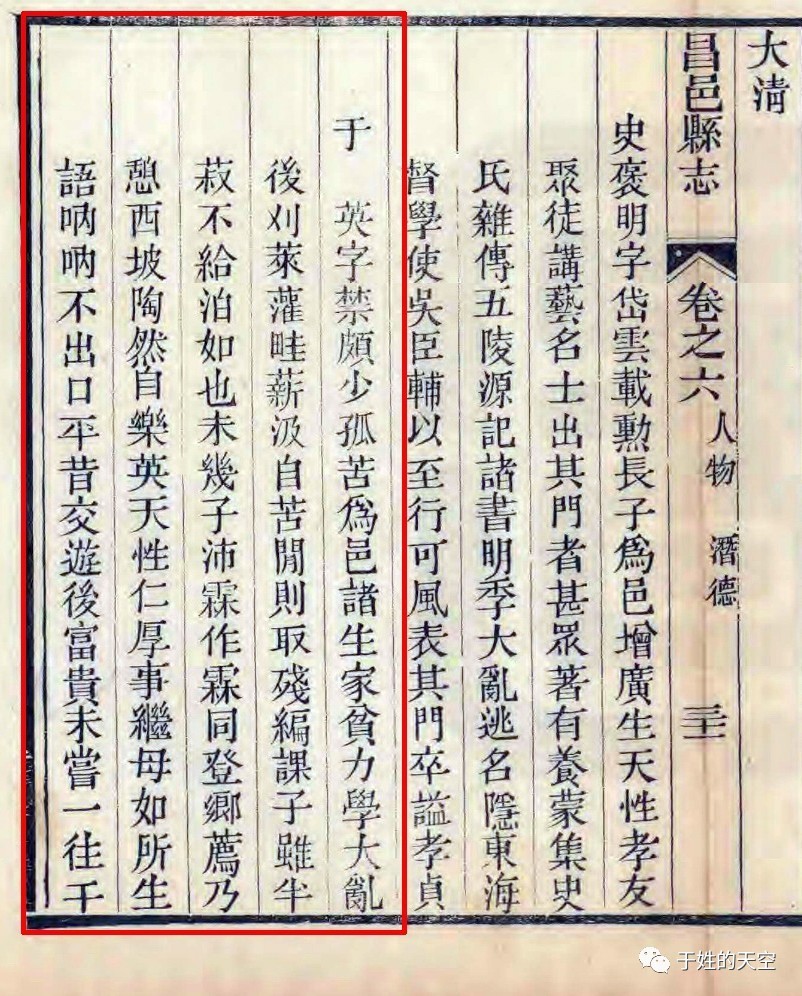 大清
昌邑縣志 卷之六 人物 潛德 三十二
史褒明字岱雲載勲長子爲邑增廣生天性孝友
聚徒講藝名士出其門者甚眾著有養蒙集史
氏雜傳五陵源記諸書明季大亂逃名隱東海
督學使吳臣輔以至行可風表其門卒謚孝貞
于 英字禁頗少孤苦爲邑諸生家貧力學大亂
後刈萊灌畦薪汲自苦閒則取殘編課子雖半
菽不給泊如也未幾子沛霖作霖同登鄉薦乃
憩西坡陶然自樂英天性仁厚事繼母如所生
語吶吶不出口平昔交遊後富貴未嘗一往干
于姓的天空